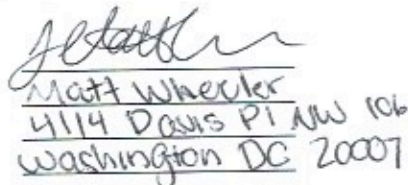 Matt Wheeler
4114 Davis Pl NW 106
Washington DC 20007